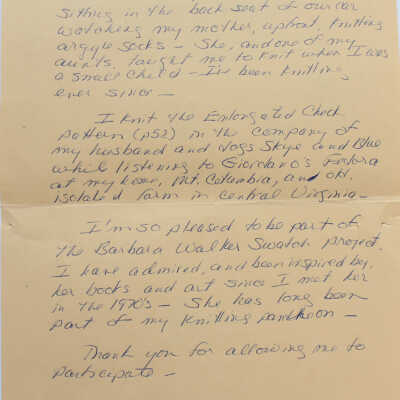 Sitting in the back seat of our car
watching my mother, upfront, knitting
argyle socks - She, and one of my
aunts, taught me to knit when I was
a small child - I've been knitting
ever since -
I knit the Enlongated Check
pattern (p52) in the company of
my husband and dogs Skye and Blue
while listening to Giordano's Fedora
at my home, Mt. Columbia, an old,
isolated farm in Central Virginia -
I'm so pleased to be part of
the Barbara Walker Swatch project.
I have admired, and been inspired by,
her books and art since I met her
in the 1970's - She has long been
part of my knitting pantheon -
Thank you for allowing me to
participate -